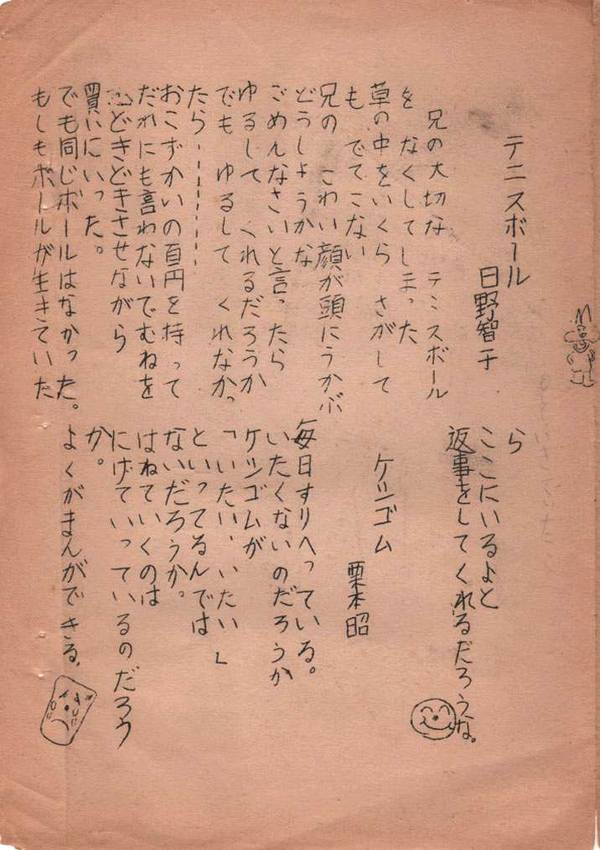 テニスボール
日野智子
兄の大切な テニスボール
を なくしてしまった
草の中をいくら さがして
も でてこない
兄の こわい顔が頭にうかぶ
どうしようかな
ごめんなさいと言ったら
ゆるして くれるだろうか
でも ゆるして くれなかっ
たら…………
おこずかいの百円を持って
だれにも言わないでむねを
どきどきさせながら
買いにいった。
でも同じボールはなかった。
もしもボールが生きていた
ら
ここにいるよと
返事をしてくれるだろうな。
ケシゴム
栗本昭
毎日すりへっている。
いたくないのだろうか
ケシゴムが
「いたい、いたい」
といってるんでは
ないだろうか。
はねていくのは
にげていっているのだろう
か。
よくがまんができる。